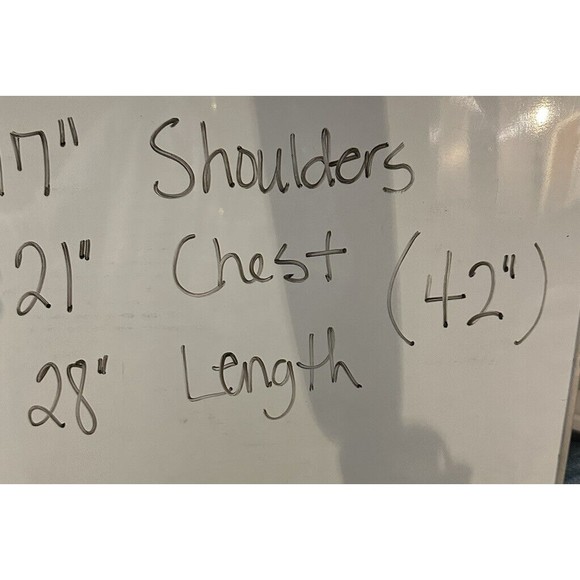 17" Shoulders
21" Chest (42")
28" Length